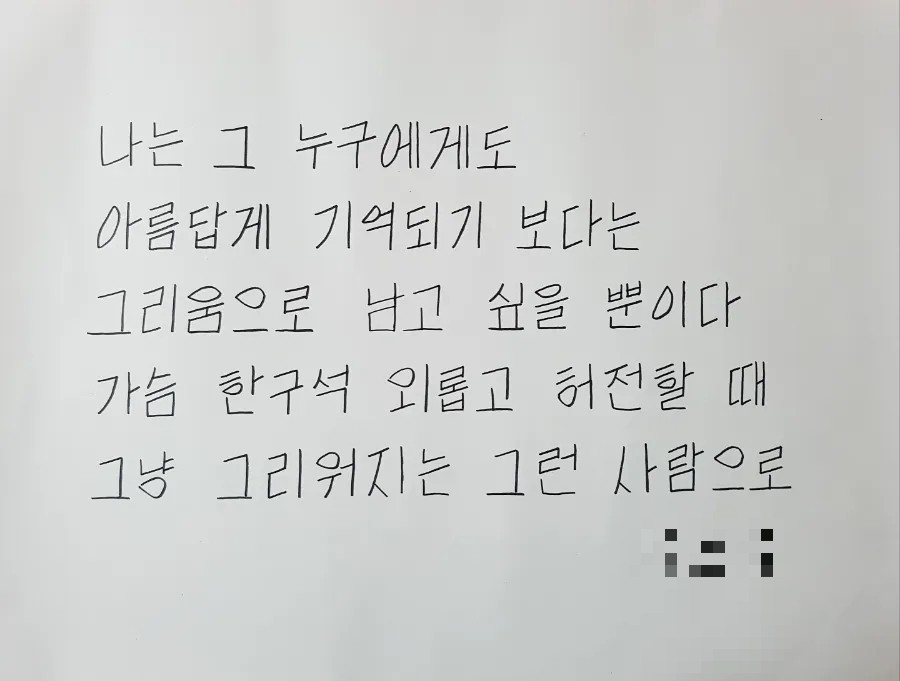 나는 그 누구에게도
아름답게 기억되기 보다는
그리움으로 남고 싶을 뿐이다
가슴 한구석 외롭고 허전할 때
그냥 그리워지는 그런 사람으로